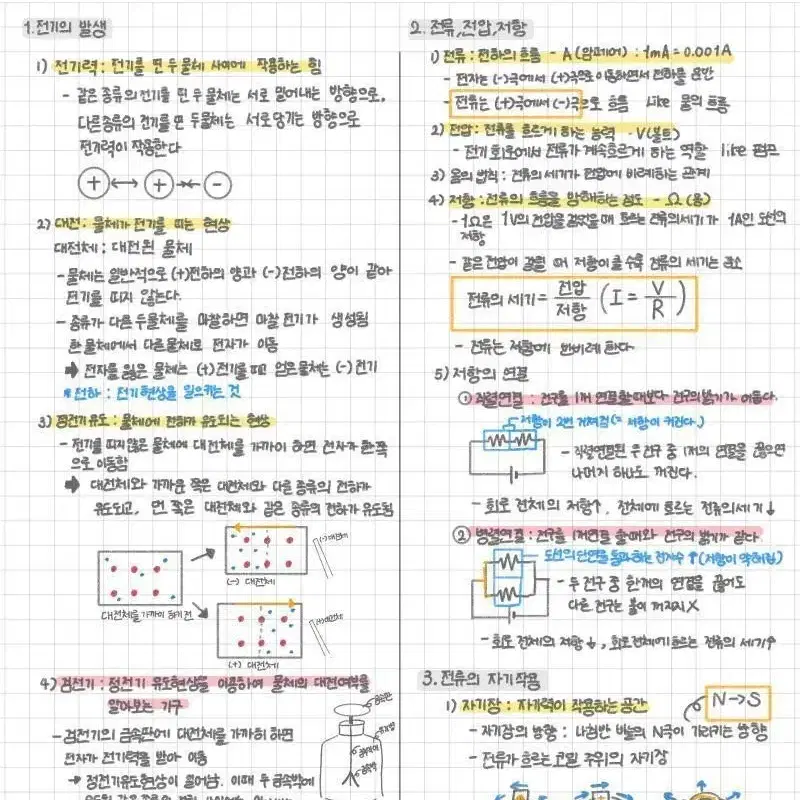 1. 전기의 발생
1) 전기력 : 전기를 띤 두 물체 사이에 작용하는 힘
- 같은 종류의 전기를 띤 두 물체는 서로 밀어내는 방향으로,
다른종류의 전기를 띤 두물체는 서로당기는 방향으로
전기력이 작용한다
+ + -
2) 대전 : 물체가 전기를 띠는 현상
대전체 : 대전된 물체
- 물체는 일반적으로 (+)전하의 양과 (-)전하의 양이 같아
전기를 띠지 않는다.
- 종류가 다른 두물체를 마찰하면 마찰 전기가 생성됨
한 물체에서 다른물체로 전자가 이동
➡ 전자를 잃은 물체는 (+)전기를 띠고 얻은물체는 (-)전기
* 전하 : 전기현상을 일으키는 것
3) 정전기유도 : 물체에 전하가 유도되는 현상
- 전기를 띠지않은 물체에 대전체를 가까이 하면 전자가 한쪽
으로 이동함
➡ 대전체와 가까운 쪽은 대전체와 다른 종류의 전하가
유도되고, 먼 쪽은 대전체와 같은 종류의 전하가 유도됨
(-)대전체
(-) 대전체
대전체를 가까이 하기 전
(+)대전체
(+) 대전체
4) 검전기 : 정전기 유도현상을 이용하여 물체의 대전여부를
알아보는 기구
- 검전기의 금속판에 대전체를 가까히 하면
전자가 전기력을 받아 이동
→ 정전기유도현상이 일어남. 이때 두 금속박에
금속판
금속박
2. 전류, 전압, 저항
1) 전류 : 전하의 흐름 - A (암페어) : 1mA = 0.001A
- 전자는 (-)극에서 (+)극으로 이동하면서 전하를 운반
- 전류는 (+)극에서 (-)극으로 흐름 like 물의 흐름
2) 전압 : 전류를 흐르게 하는 능력 - V(볼트)
- 전기 회로에서 전류가 계속흐르게 하는 역할 like 펌프
3) 옴의 법칙 : 전류의 세기가 전압에 비례하는 관계
4) 저항 : 전류의 흐름을 방해하는 정도 - Ω (옴)
- 1Ω은 1V의 전압을 걸었을 때 흐르는 전류의 세기가 1A인 도선의
저항
- 같은 전압이 걸릴 때 저항이 클 수록 전류의 세기는 감소
전류의 세기 = 전압/저항 ( I = V/R )
- 전류는 저항에 반비례 한다
5) 저항의 연결
① 직렬연결 : 전구를 1개 연결할때보다 전구의 밝기가 어둡다.
저항이 2번 거쳐감 (= 저항이 커진다.)
- 직렬연결된 두 전구 중 1개의 연결을 끊으면
나머지 하나도 꺼진다.
- 회로 전체의 저항↑, 전체에 흐르는 전류의세기↓
② 병렬연결 : 전구를 1개연결 할때와 전구의 밝기가 같다.
도선의 단면을 통과하는 전자수 ↑ (저항이 약해짐)
- 두 전구 중 한개의 연결을 끊어도
다른 전구는 불이 꺼지지 X
- 회로 전체의 저항 ↓, 회로전체에 흐르는 전류의 세기↑
3. 전류의 자기작용
1) 자기장 : 자기력이 작용하는 공간
N→S
- 자기장의 방향 : 나침반 바늘의 N극이 가리키는 방향
- 전류가 흐르는 코일 주위의 자기장